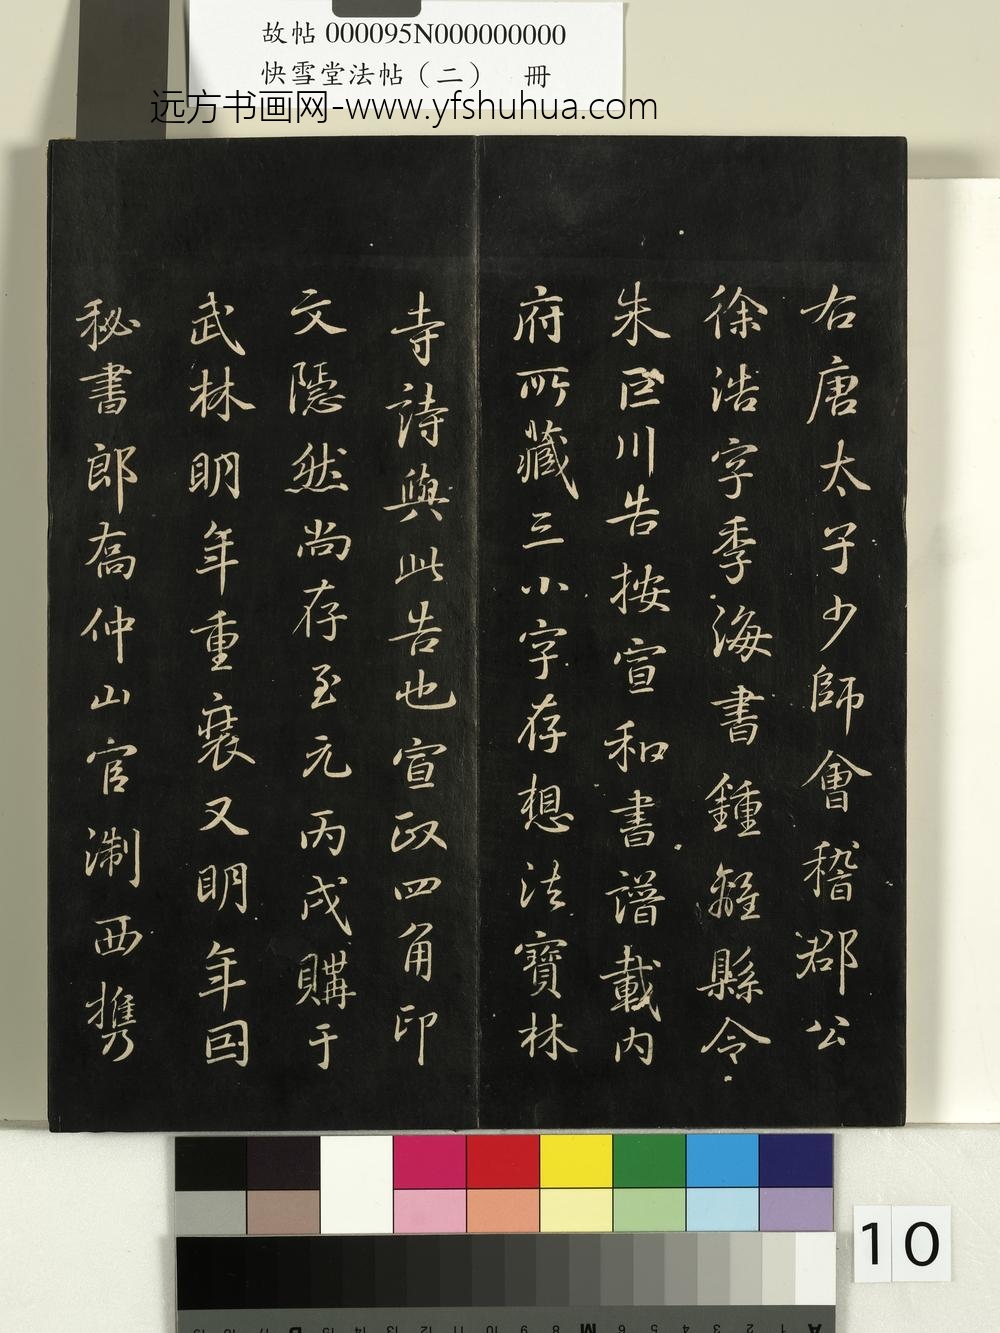 故帖 000095N000000000
快雪堂法帖（二） 冊
远方书画网-www.yfshuhua.com
右唐太子少師會稽郡公
徐浩字季海書鍾離縣令
朱巨川告按宣和書譜載内
府所藏三小字存想法寶林
寺詩與此告也宣政四角印
文隱然尚存至元丙戌購于
武林明年重裝又明年因
秘書郎喬仲山官淛西携
10